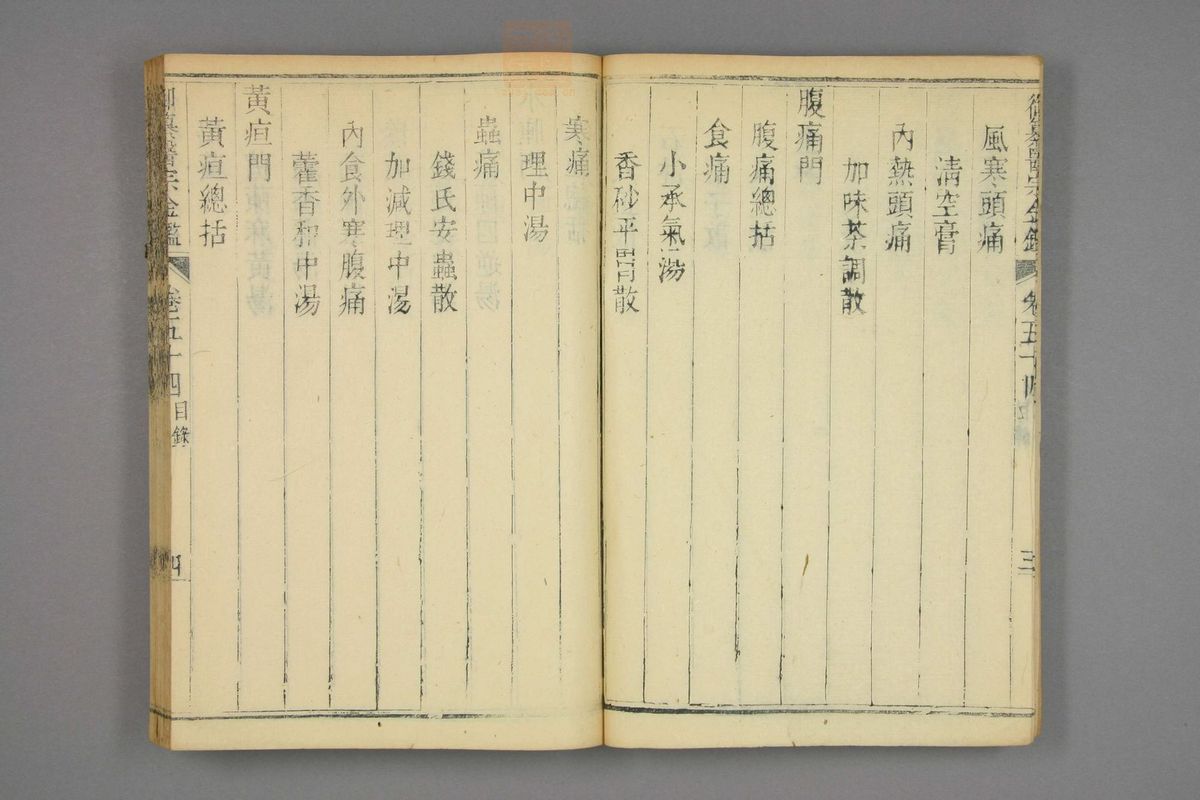 風寒頭痛
清空膏
內熱頭痛
加味茶調散
腹痛門
腹痛總括
食痛
小承氣湯
香砂平胃散
寒痛
理中湯
蟲痛
錢氏安蟲散
加減理中湯
內食外寒腹痛
藿香和中湯
黃疸門
黃疸總括
卷五十四 目錄
四
三